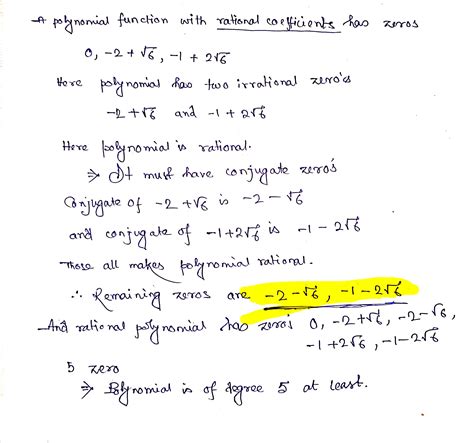 A polynomial function with rational coefficients has zeros
0, -2 + √6, -1 + 2√6
Here polynomial has two irrational zero's
-2 + √6 and -1 + 2√6
Here polynomial is rational.
⇒ It must have conjugate zero's
Conjugate of -2 + √6 is -2 - √6
and conjugate of -1 + 2√6 is -1 - 2√6
Those all makes polynomial rational.
∴ Remaining zeros are -2 - √6, -1 - 2√6
And rational polynomial has zero's 0, -2 + √6, -2 - √6,
-1 + 2√6, -1 - 2√6
5 zero
⇒ Polynomial is of degree 5 at least.